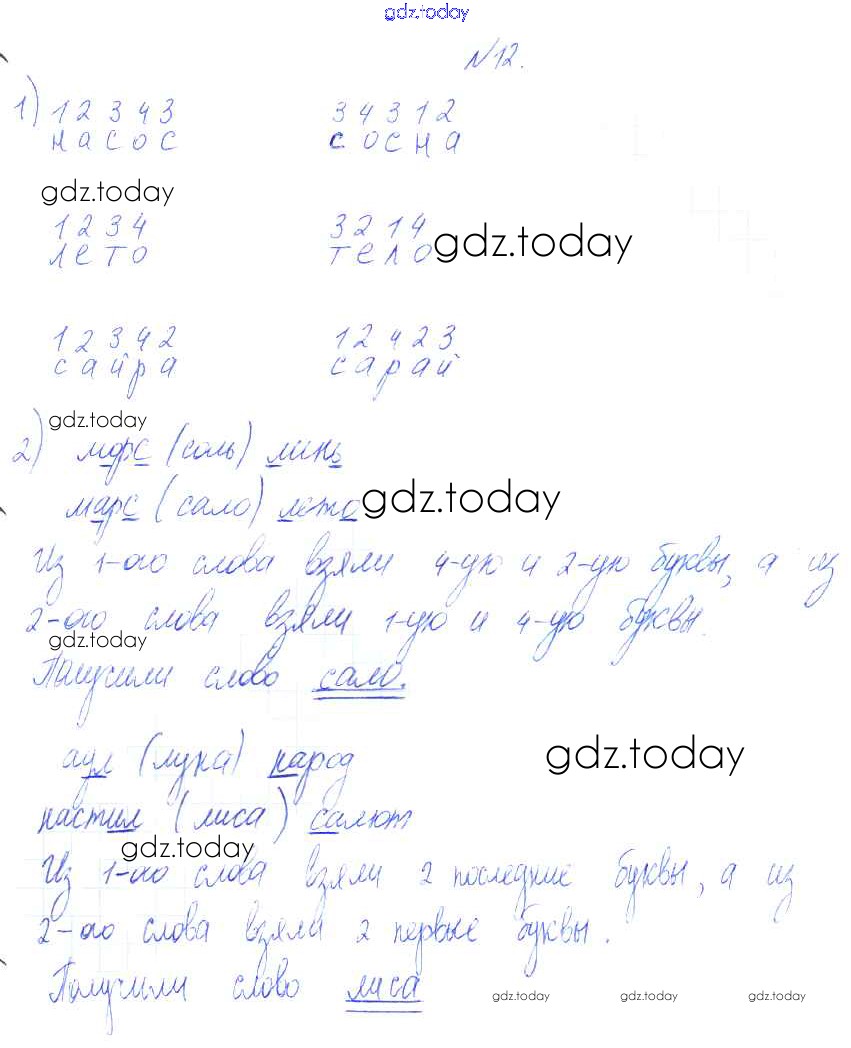 gdz.today
№12.
1) 1 2 3 4 3 3 4 3 1 2
н а с о с с о с н а
gdz.today
1 2 3 4 3 2 1 4
л е т о т е л о gdz.today
1 2 3 4 2 1 2 4 2 3
с а й р а с а р а й
gdz.today
2) морс (соль) линь
марс (сало) лето gdz.today
Из 1-ого слова взяли 4-ую и 2-ую буквы, а из
2-ого слова взяли 1-ую и 4-ую буквы.
gdz.today
Получили слово сало.
аул (лука) народ gdz.today
настил (лиса) салют
gdz.today
Из 1-ого слова взяли 2 последние буквы, а из
2-ого слова взяли 2 первые буквы.
Получили слово лиса
gdz.today gdz.today gdz.today